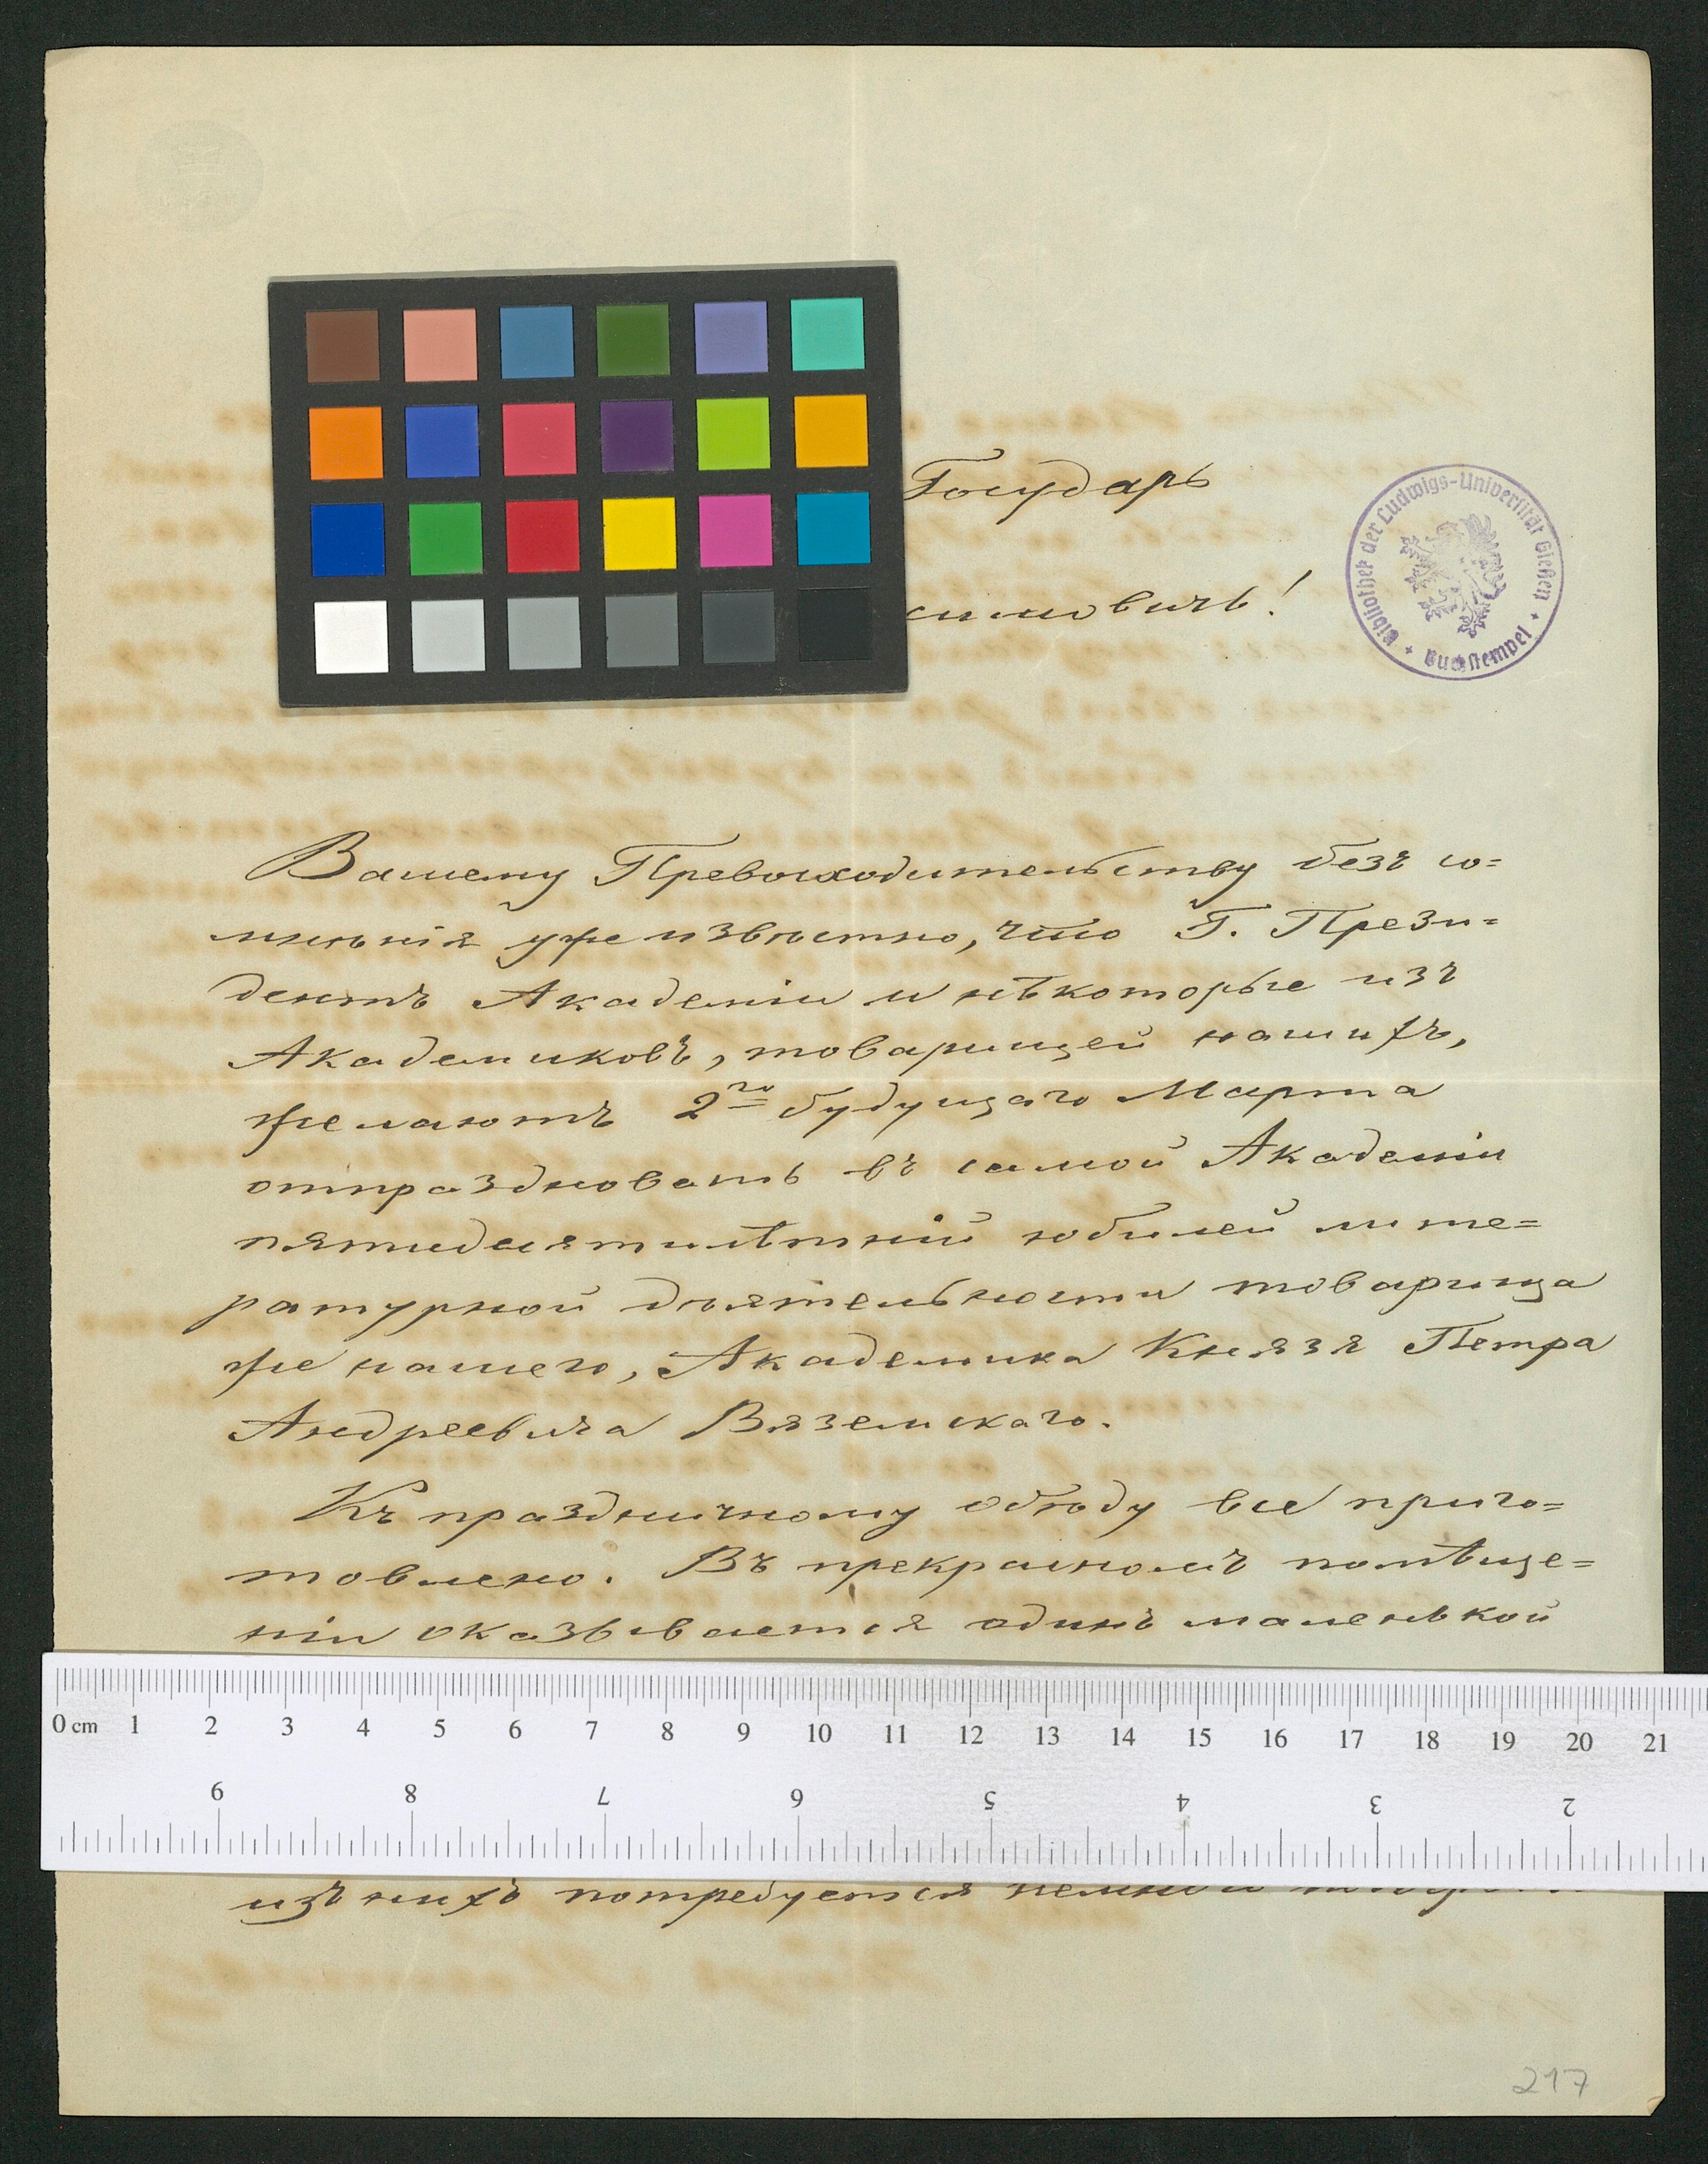 Государь
симовичъ!
Bibliothek der Ludwigs-Universität Gießen
Buchstempel
Вашему Превосходительству безъ со=
мнѣнія уже извѣстно, что Г. Прези=
дентъ Академіи и нѣкоторые изъ
Академиковъ, товарищей нашихъ,
желаютъ 2го будущаго Марта
отпраздновать въ самой Академіи
пятидесятилѣтній юбилей лите=
ратурной дѣятельности товарища
же нашего, Академика Князя Петра
Андреевича Вяземскаго.
Къ праздничному обѣду все приго=
товлено. Въ прекрасномъ помѣще=
ніи оказывается одинъ маленькой
0 cm 1 2 3 4 5 6 7 8 9 10 11 12 13 14 15 16 17 18 19 20 21
9 8 7 6 5 4 3 2
изъ нихъ потребуется
217